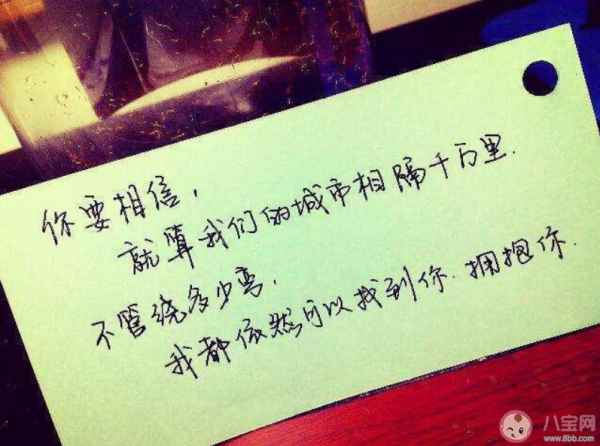 你要相信，
就算我们的城市相隔千万里.
不管绕多少弯，
我都依然可以找到你.拥抱你.
八宝网
www.8bb.com